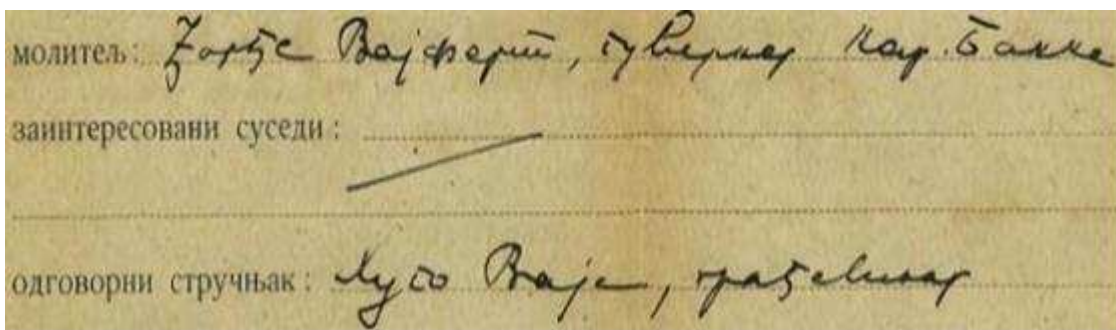 молитељ: Ђорђе Вајферт, гувернер Нар. Банке
заинтересовани суседи :
одговорни стручњак : ХугоВаје, грађевинар